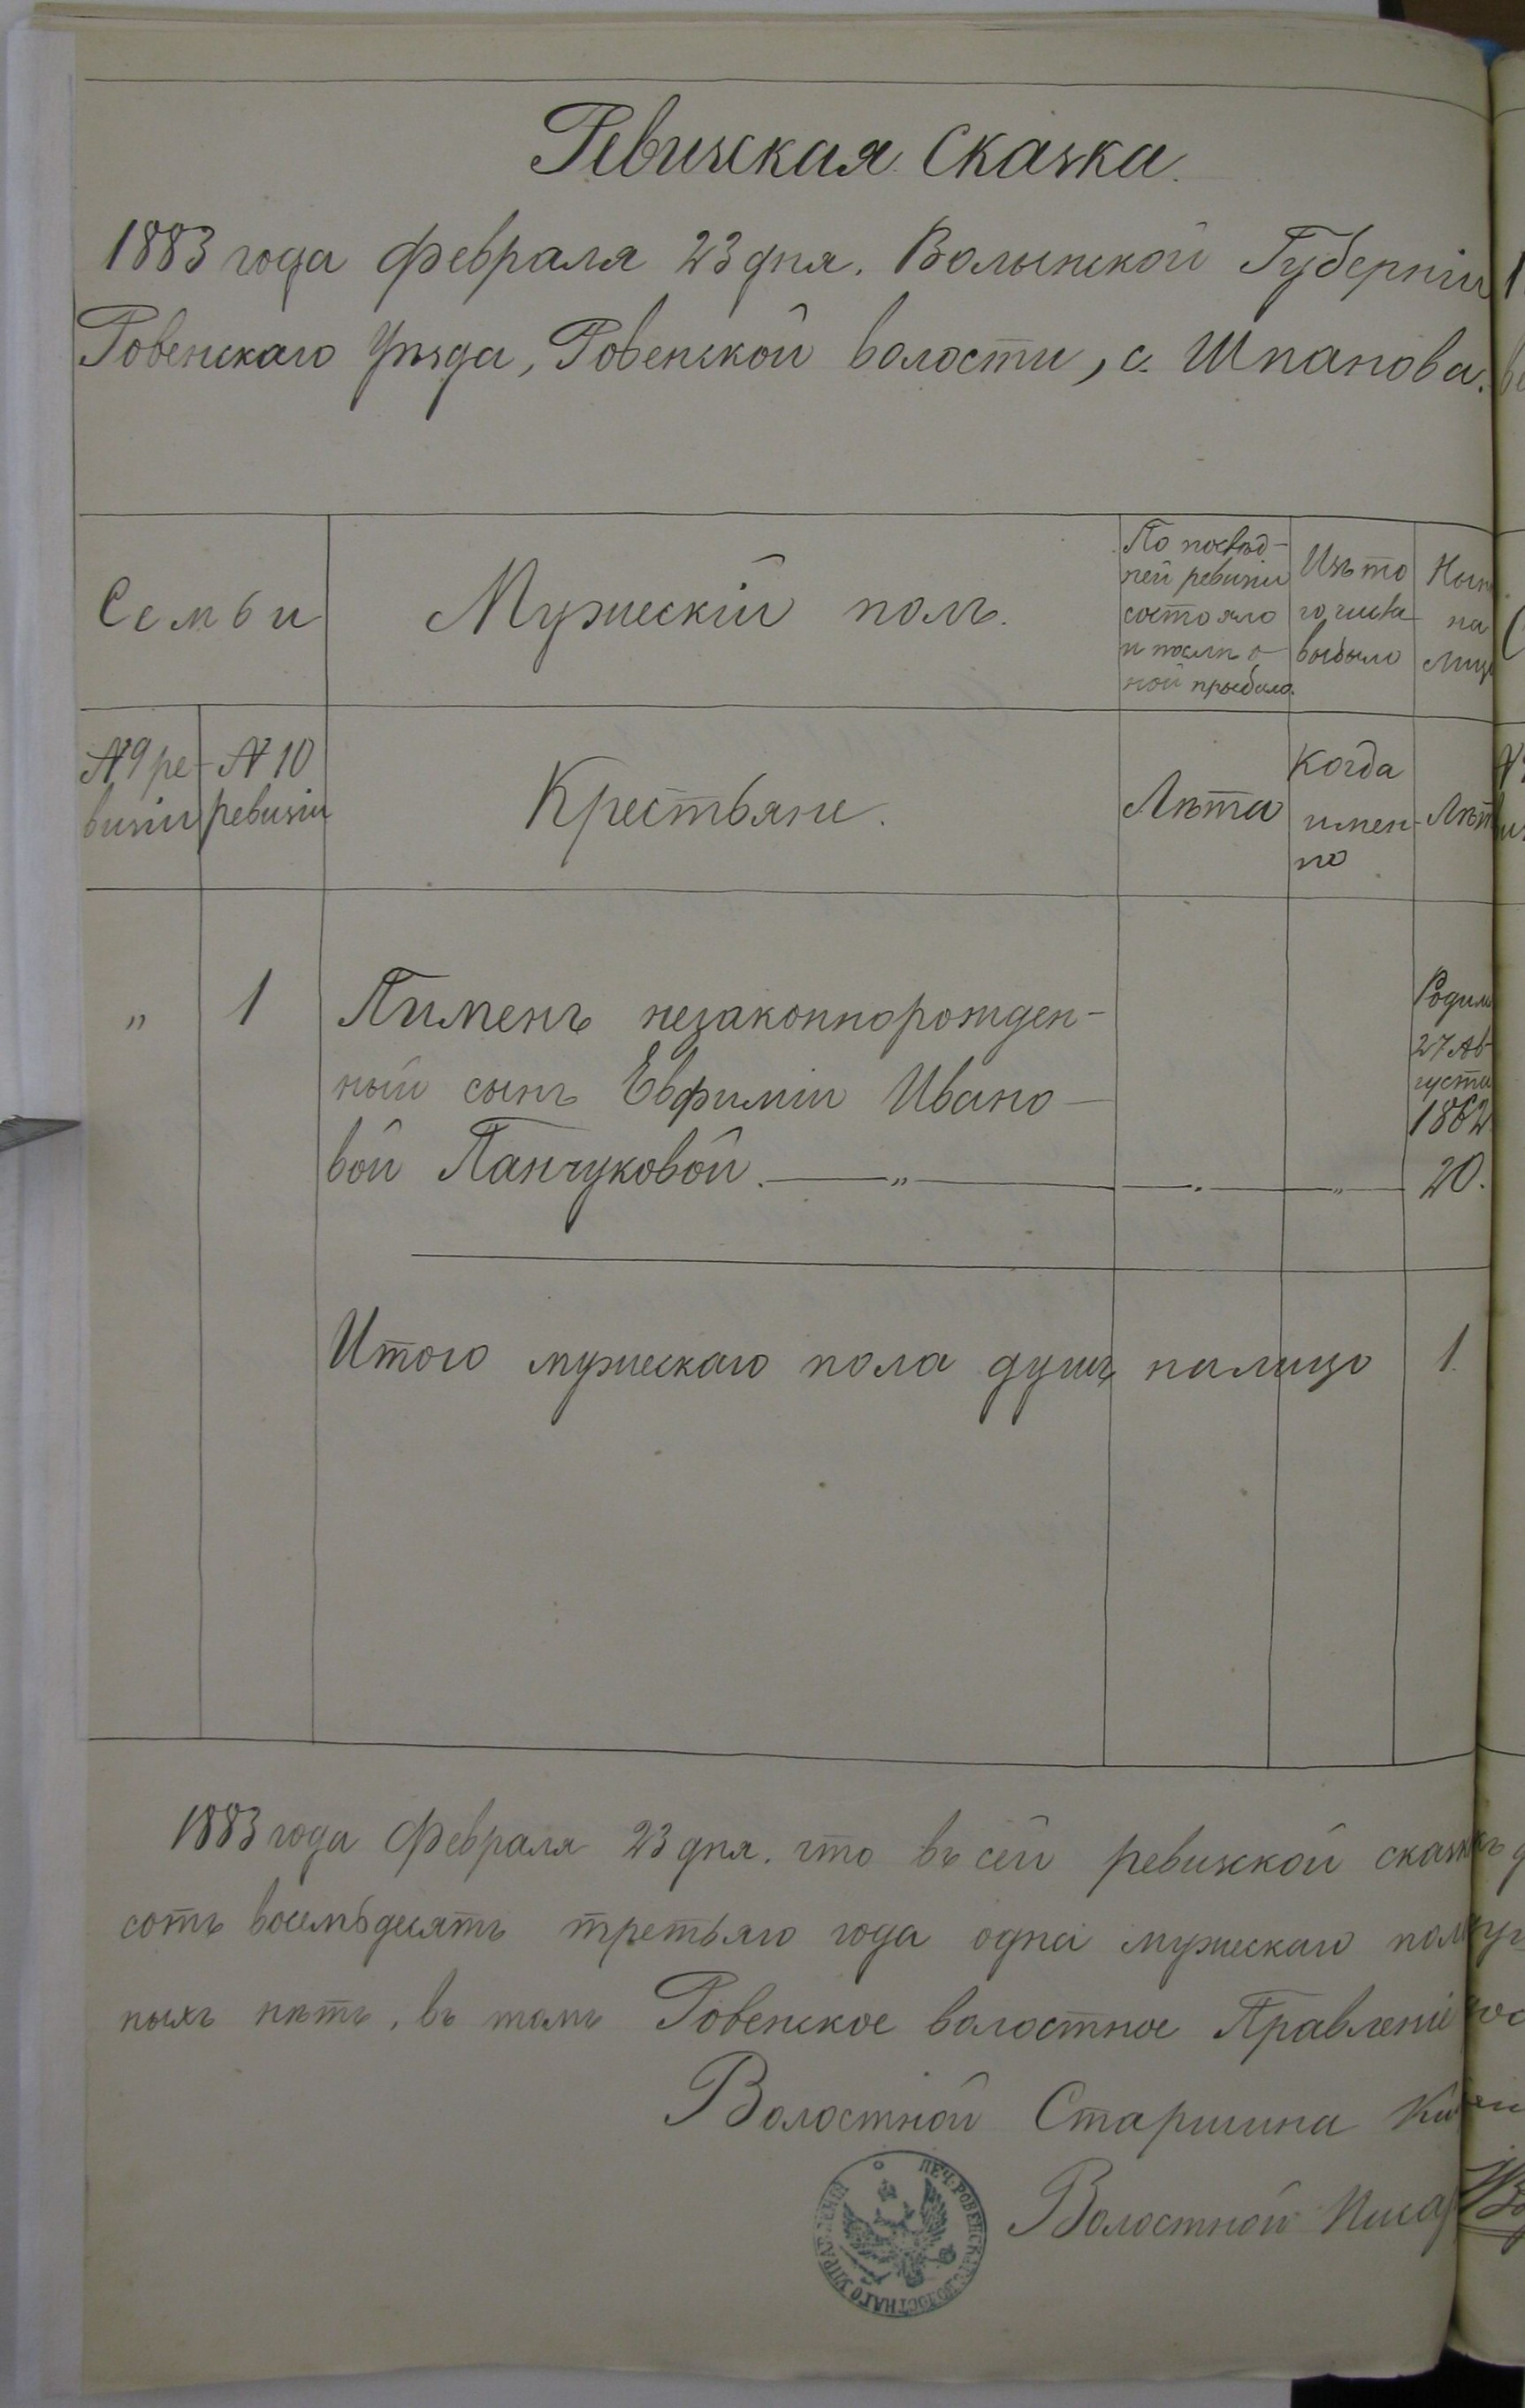 Ревизская Сказка.
1883 года февраля 23 дня. Волынской Губернiи
Ровенскаго Уѣзда, Ровенской волости, с. Шпанова.
Семьи
Мужескiй полъ.
По послѣд-
ней ревизiи
состояло
и послѣ о-
ной прибыло.
Изъ то
го числа
выбыло
Нын
на
лиц
№ 9 ре-
визiи
№ 10
ревизiи
Крестьяне.
Лѣта
Когда
имен-
но
Лѣт
„ 1 Пименъ незаконнорожден-
ный сынъ Евфимiи Ивано-
вой Панчуковой. — „ —
Родил
27 Ав-
густа
1862
20.
Итого мужескаго пола душъ налицо 1.
1883 года Февраля 23 дня. что въ сей ревизской сказкѣ
сотъ восемьдесятъ третьяго года одна мужескаго пол
ныхъ нѣтъ, въ томъ Ровенское волостное Правленiе
Волостной Старшина
Волостной Писар
ПЕЧ. РОВЕНСКАГО ВОЛОСТНАГО УПРАВЛЕНIЯ